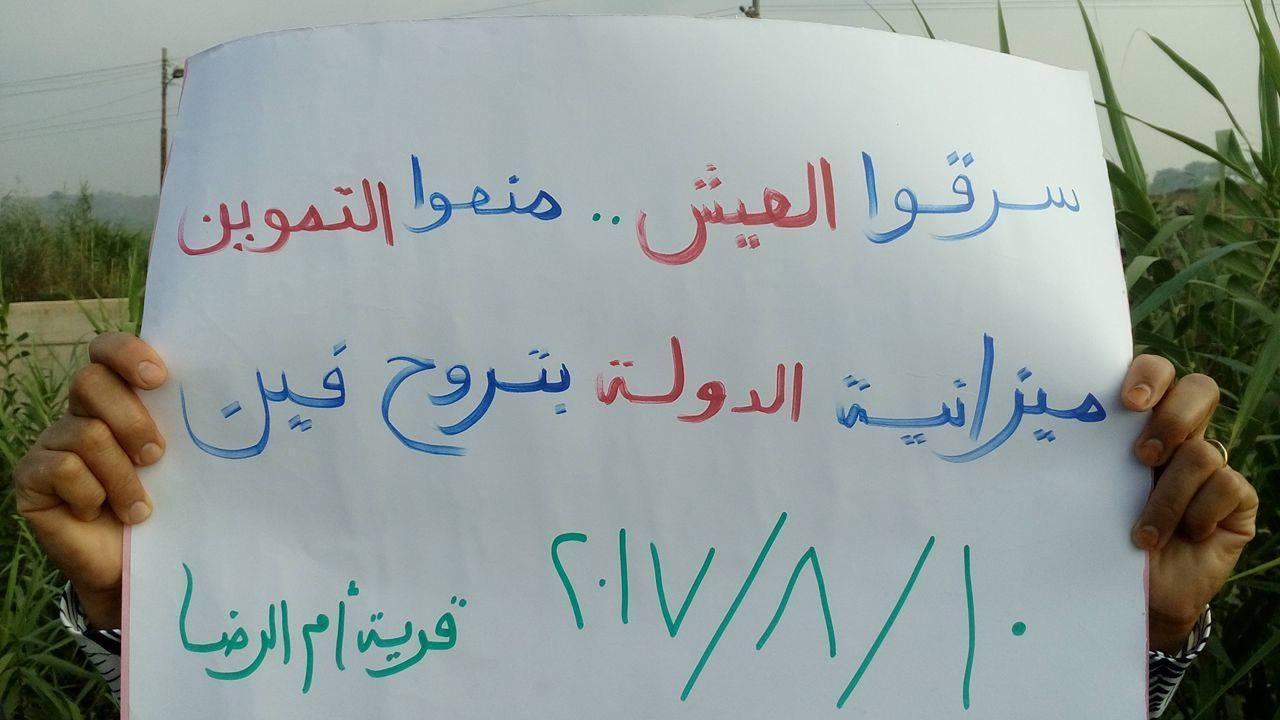 سرقوا العيش .. منعوا التموين
ميزانية الدولة بتروح فين
١٠/٨/٢٠١٧
قرية أم الرضا